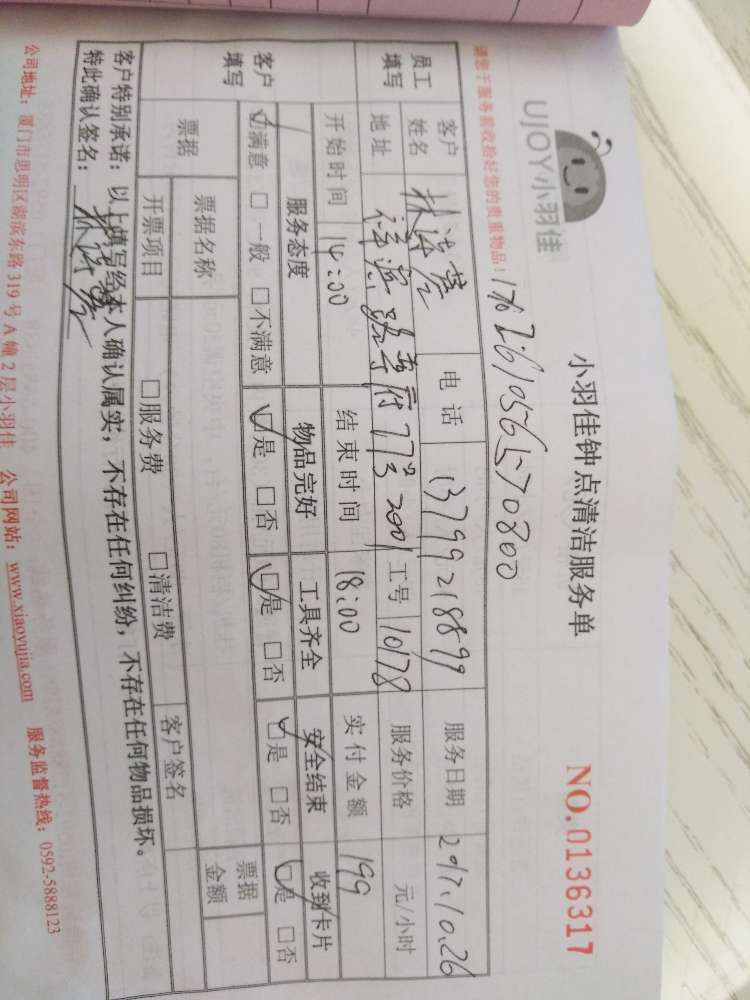 UJOY小羽佳
小羽佳钟点清洁服务单
NO.0136317
请您于服务前收拾好您的贵重物品！
176261056570800
员工填写 客户姓名 电话 13799218899 服务日期 2017.10.26
地址 2001 工号 10178 服务价格 元/小时
开始时间 14:00 结束时间 18:00 实付金额 199
客户填写 服务态度 物品完好 工具齐全 安全结束 收到卡片
☑满意 □一般 □不满意 ☑是 □否 ☑是 □否 ☑是 □否 ☑是 □否
票据 票据名称 票据金额
开票项目 □服务费 □清洁费 客户签名
客户特别承诺：以上填写经本人确认属实，不存在任何纠纷，不存在任何物品损坏。
特此确认签名：
公司地址：厦门市思明区湖滨东路319号A幢2层小羽佳 公司网站：www.xiaoyujia.com 服务监督热线：0592-5888123